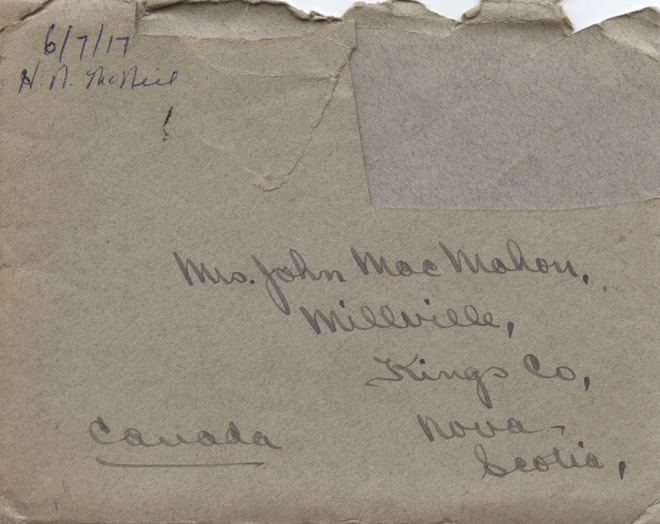 6/7/17
H. N. McNeil
Mrs. John MacMahon,
Millville,
Kings Co,
Nova
Scotia,
Canada